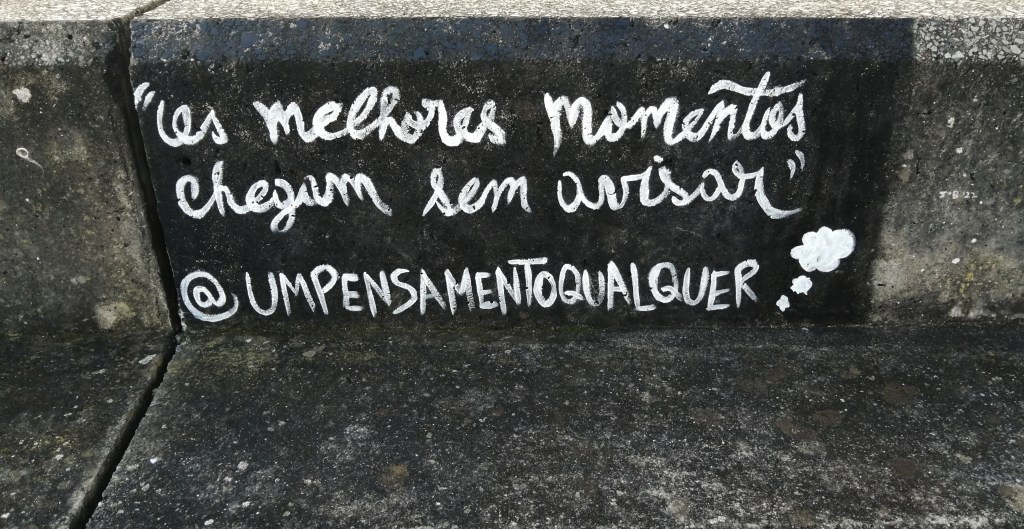 "os melhores momentos
chegam sem avisar"
@UMPENSAMENTOQUALQUER